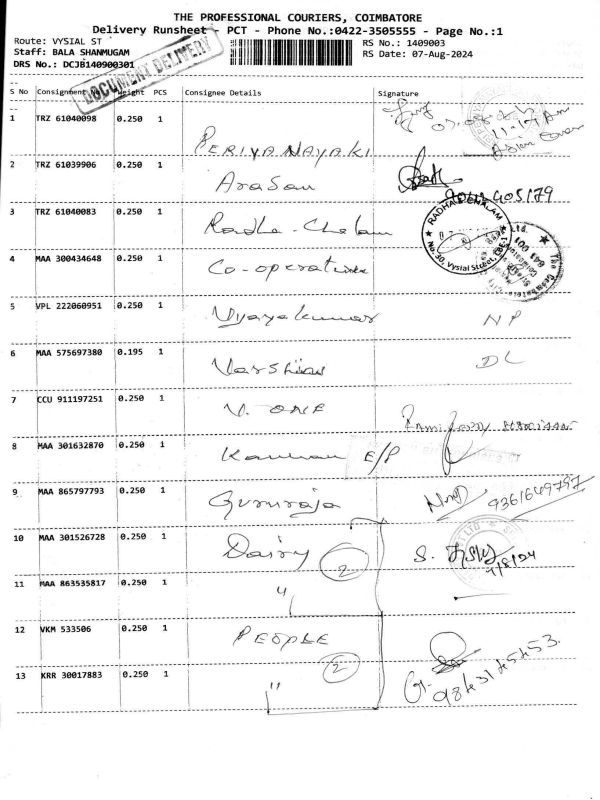 THE PROFESSIONAL COURIERS, COIMBATORE
Delivery Runsheet - PCT - Phone No.:0422-3505555 - Page No.:1
Route: VYSIAL ST RS No.: 1409003
Staff: BALA SHANMUGAM RS Date: 07-Aug-2024
DRS No.: DCJB140900301
DOCUMENT DELIVERY
S No Consignment No Weight PCS Consignee Details Signature
1 TRZ 61040098 0.250 1 PERIYANAYAKI 11.17 Am
2 TRZ 61039906 0.250 1 Arasan
3 TRZ 61040083 0.250 1 Radha-Chalam RADHA CHALAM
No.30, Vysial Street, CBE-1
4 MAA 300434648 0.250 1 Co-operative
5 VPL 222060951 0.250 1 Vijayakumar NP
6 MAA 575697380 0.195 1 Varshini DL
7 CCU 911197251 0.250 1 V. ONE
8 MAA 301632870 0.250 1 Kannan E/P
9 MAA 865797793 0.250 1 Gururaja 9361649797
10 MAA 301526728 0.250 1 Dairy 2 S. 7/8/24
11 MAA 863535817 0.250 1 "
12 VKM 533506 0.250 1 PEOPLE 2
13 KRR 30017883 0.250 1 " G. 9843145453